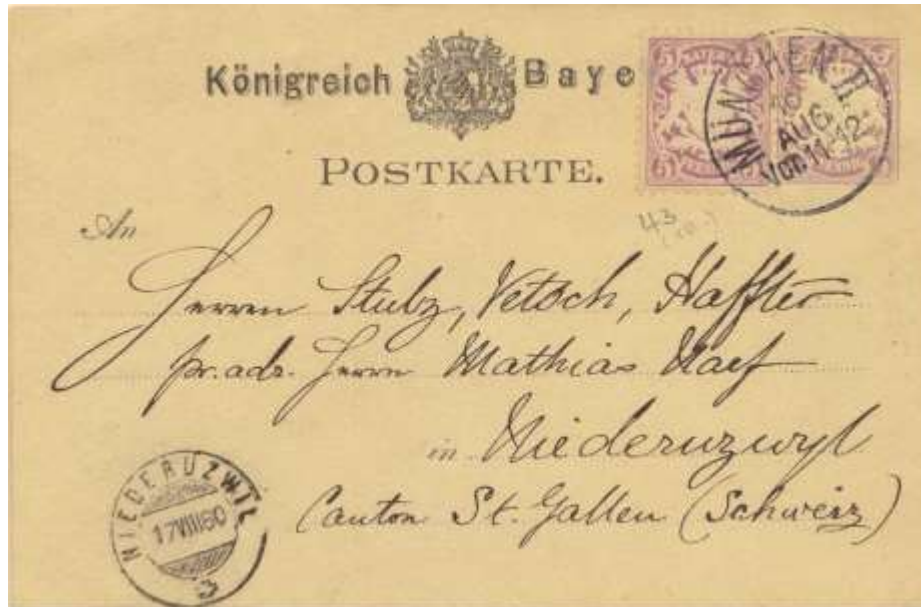 Königreich Baye
POSTKARTE.
MÜNCHEN II
AUG
Vor. 11-12
43
An
Herren Stulz, Vetsch, Haffter
pr. adr. Herrn Mathias Naef
in Niederuzwyl
Canton St. Gallen (Schweiz)
NIEDERUZWIL
17 VIII 80